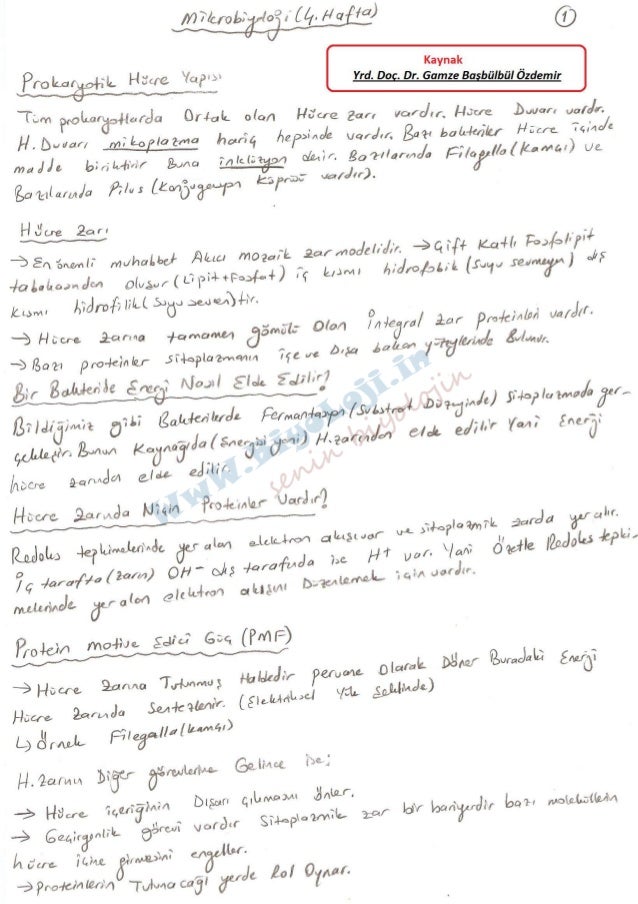 Mikrobiyoloji (4. Hafta)
1
Kaynak
Yrd. Doç. Dr. Gamze Başbülbül Özdemir
Prokaryotik Hücre Yapısı
Tüm prokaryotlarda Ortak olan Hücre zarı vardır. Hücre Duvarı vardır.
H. Duvarı mikoplazma hariç hepsinde vardır. Bazı bakteriler Hücre içinde
madde biriktirir Buna inklüzyon denir. Bazılarında Filagella (Kamçı) ve
Bazılarında Pilus (Konjugewyon Köprüsü vardır).
Hücre Zarı
→ En önemli muhabbet Akıcı mozaik zar modelidir. → Çift Katlı Fosfolipit
tabakasından oluşur (Lipit+Fosfat) iç kısmı hidrofobik (suyu sevmeyen) dış
kısmı hidrofilik (suyu seven) tir.
→ Hücre zarına tamamen gömülü Olan integral zar proteinleri vardır.
→ Bazı proteinler sitoplazmanın içe ve Dışa bakan yüzeylerinde Bulunur.
Bir Bakteride Enerji Nasıl Elde Edilir?
Bildiğimiz gibi Bakterilerde Fermantasyon (Substrat Düzeyinde) Sitoplazmada ger-
çekleşir. Bunun Kaynağıda (Enerjisi yani) H.zarından elde edilir Yani Enerji
hücre zarında elde edilir.
Hücre Zarında Niçin Proteinler Vardır?
Redoks tepkimelerinde yer alan elektron akışı var ve sitoplazmik zarda yer alır.
İç tarafta (zarın) OH- dış tarafında ise H+ var. Yani Özetle Redoks tepki-
melerinde yer alan elektron akışını Düzenlemek için vardır.
Protein motive Edici Güç (PMF)
→ Hücre zarına Tutunmuş Haldedir pervane Olarak Döner Buradaki Enerji
Hücre zarında Sentezlenir. (Elektriksel Yük Şeklinde)
↳ Örnek Filegalla (kamçı)
H. zarının Diğer görevlerine Gelince ise;
→ Hücre içeriğinin Dışarı çıkmasını önler.
→ Geçirgenlik görevi vardır Sitoplazmik zar bir bariyerdir bazı moleküllerin
hücre içine girmesini engeller.
→ Proteinlerin Tutunacağı yerde Rol Oynar.
www.biyoloji.in
senin biyolojin